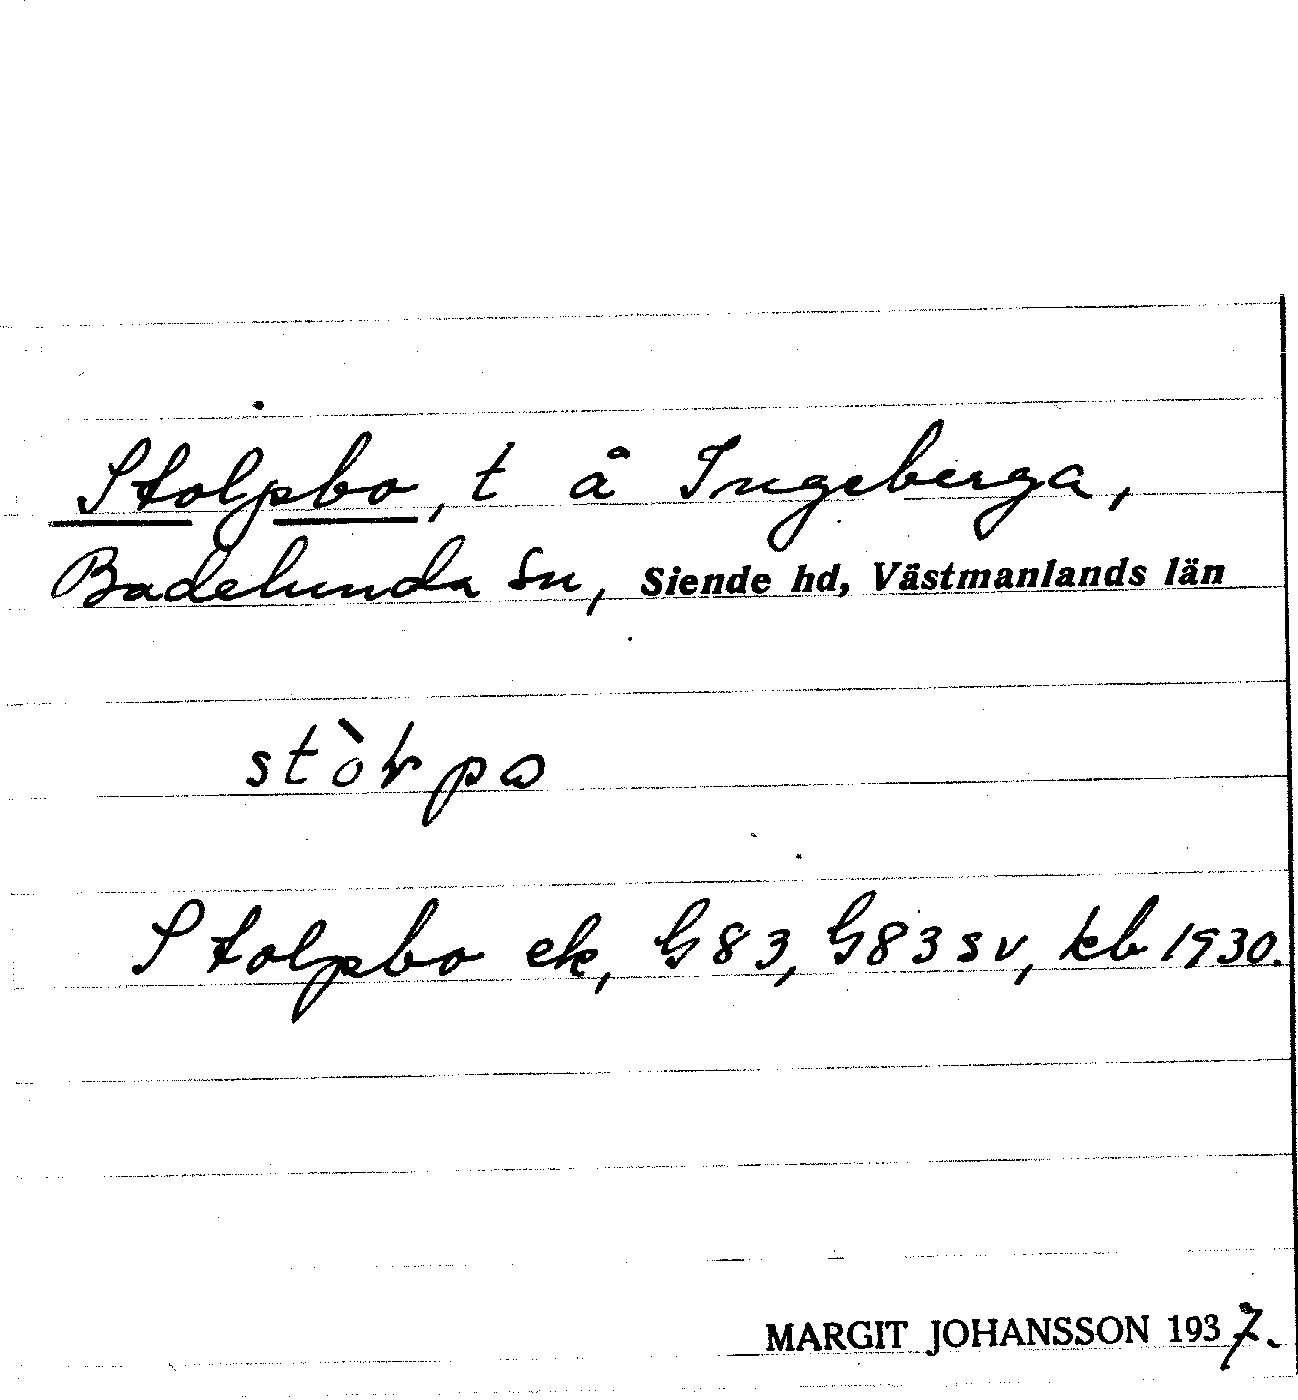 Stolpbo, t å Ingeberga,
Badelunda sn, Siende hd, Västmanlands län
Stolpbo ek, G83, G83sv, kb 1930.
MARGIT JOHANSSON 1937.